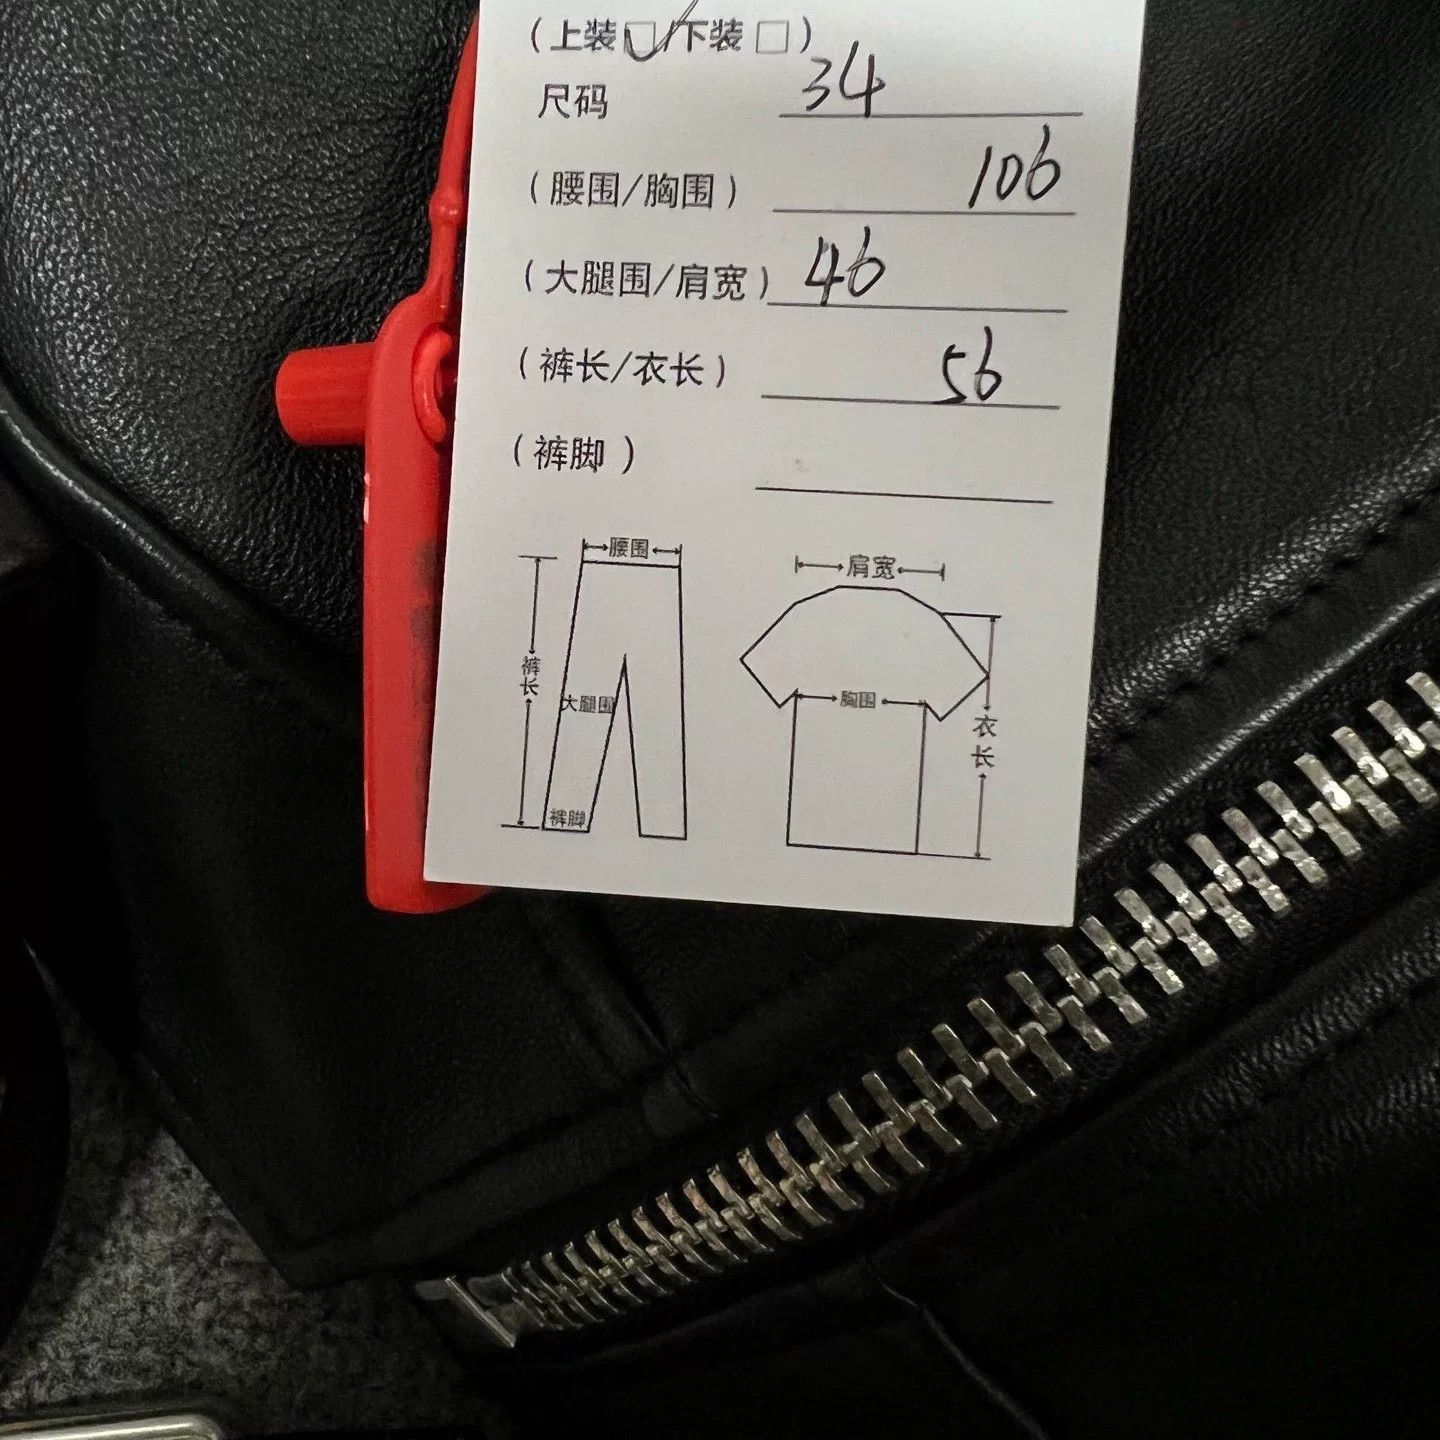 (上装□✓/下装□)
尺码 34
(腰围/胸围) 106
(大腿围/肩宽) 46
(裤长/衣长) 56
(裤脚)
腰围
裤长
大腿围
裤脚
肩宽
胸围
衣长